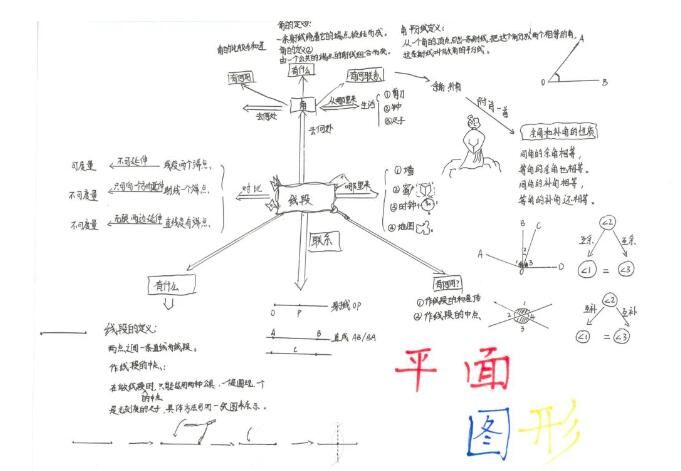 角的定义①:
一条射线绕着它的端点旋转而成。
角的定义②
由一个公共的端点的射线组合而成。
角的比较和和差
角平分线定义:
从一个角的顶点引出一条射线,把这个角分成两个相等的角,
这条射线叫做角的平分线。
A
O
B
有何用
有什么
有何联系
余角、补角
角
去何处
从哪里来
生活
① 剪刀
② 钟
③ 尺子
去何处
附角一首
余角和补角的性质
同角的余角相等,
等角的余角也相等。
同角的补角相等,
等角的补角还相等。
可度量
不可延伸
线段两个端点.
不可度量
只可向一方向延伸
射线一个端点.
不可度量
无限两边延伸
直线没有端点.
对比
线段
哪里来
① 墙
② 窗
③ 时钟
④ 地图
联系
有什么
有何用?
① 作线段的和、差、倍
② 作线段的中点
B
C
A
O
D
1
2
3
1
2
3
4
∠2
互余
互余
∠1 = ∠3
∠2
互补
互补
∠1 = ∠3
O P
射线OP
A B
直线AB/BA
C
线段的定义:
两点之间一条直线为线段。
作线段的中点:
的中点
平面
图形